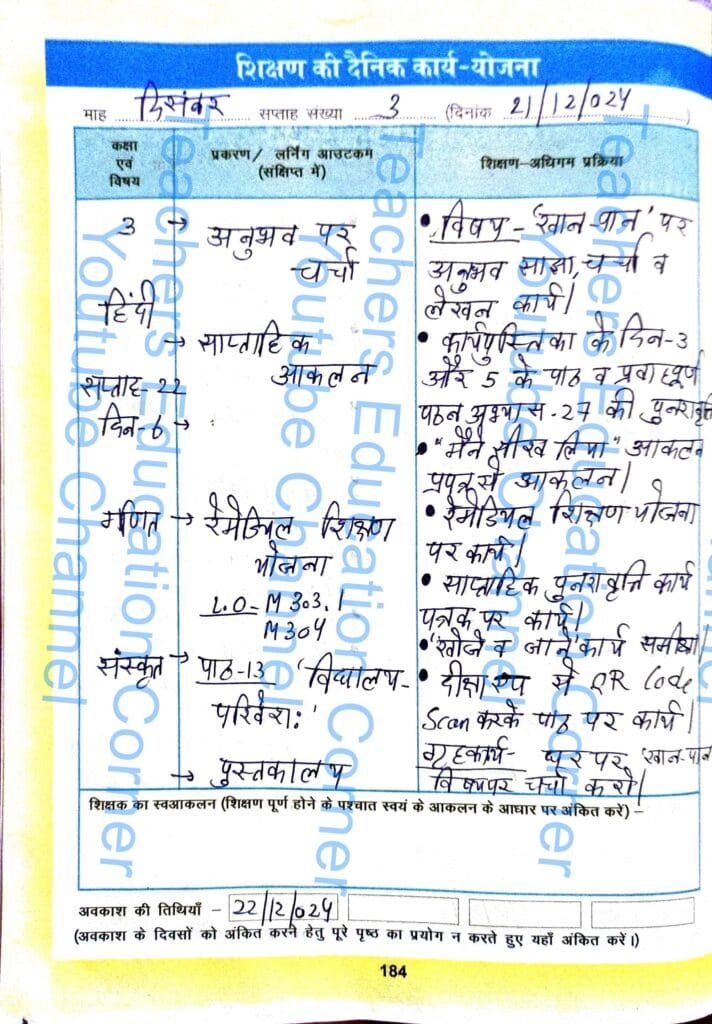 शिक्षण की दैनिक कार्य-योजना
माह दिसंबर सप्ताह संख्या 3 (दिनांक 21/12/024)
कक्षा एवं विषय
प्रकरण/ लर्निंग आउटकम (संक्षिप्त में)
शिक्षण-अधिगम प्रक्रिया
3 → अनुभव पर
चर्चा
हिंदी
→ साप्ताहिक
आकलन
सप्ताह-22
दिन-6 →
गणित → रेमेडियल शिक्षण
योजना
L.O- M 303.1
M304
संस्कृत → पाठ-13 'विद्यालय-
परिवेशः'
→ पुस्तकालय
• विषय - 'खान-पान' पर
अनुभव साझा, चर्चा व
लेखन कार्य।
• कार्यपुस्तिका के दिन-3
और 5 के पाठ व प्रवाहपूर्ण
पठन अभ्यास-27 की पुनरावृत्ति
• "मैंने सीख लिया" आकलन
प्रपत्र से आकलन।
• रेमेडियल शिक्षण योजना
पर कार्य।
• साप्ताहिक पुनरावृत्ति कार्य
पत्रक पर कार्य।
• 'खोजें व जानें' कार्य समीक्षा।
• दीक्षा एप से QR Code
Scan करके पाठ पर कार्य।
गृहकार्य- घर पर 'खान-पान
विषय पर चर्चा करो।
शिक्षक का स्वआकलन (शिक्षण पूर्ण होने के पश्चात स्वयं के आकलन के आधार पर अंकित करें) –
अवकाश की तिथियाँ – 22/12/024
(अवकाश के दिवसों को अंकित करने हेतु पूरे पृष्ठ का प्रयोग न करते हुए यहाँ अंकित करें।)
184
Teachers Education Corner
Youtube Channel
Teachers Education Corner
Youtube Channel
Teachers Education Corner
Youtube Channel